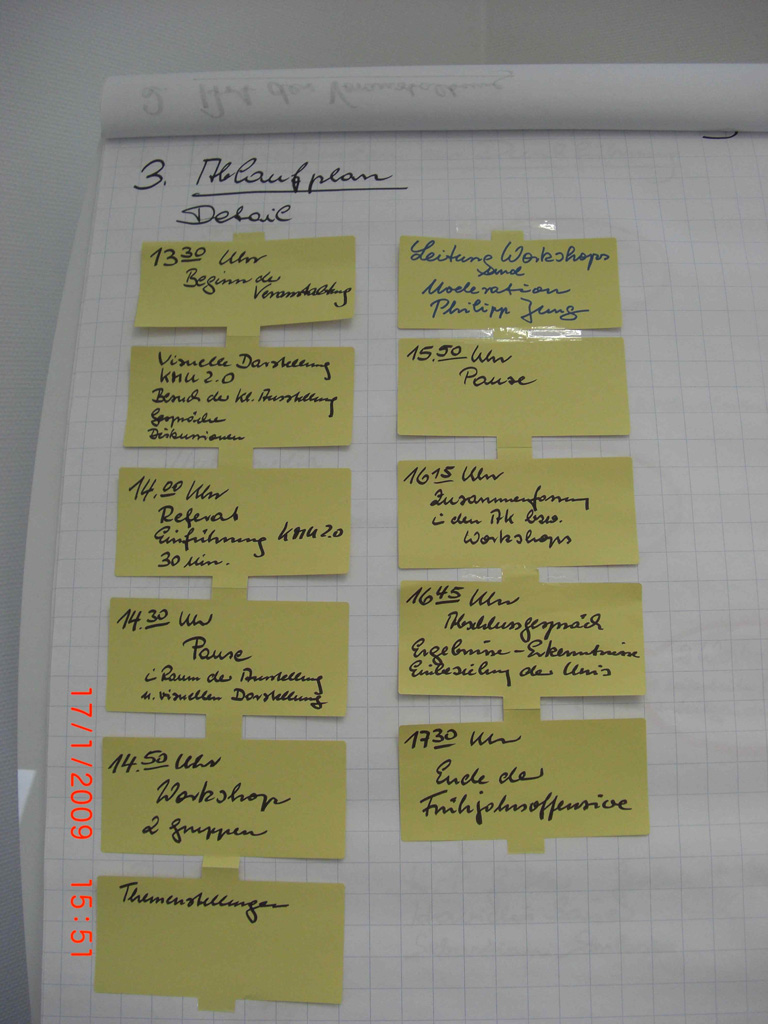 2. Art der Veranstaltung
3. Ablaufplan
Detail
13 30 Uhr
Beginn der
Veranstaltung
Visuelle Darstellung
KMU 2.0
Besuch der kl. Ausstellung
Gespräche
Diskussionen
14.00 Uhr
Referat
Einführung KMU 2.0
30 Min.
14.30 Uhr
Pause
i Raum der Ausstellung
u. visuellen Darstellung
14.50 Uhr
Workshop
2 Gruppen
Themenstellungen
Leitung Workshops
und
Moderation
Philipp Jung
15.50 Uhr
Pause
16 15 Uhr
Zusammenfassung
i den AK bzw.
Workshops
16 45 Uhr
Abschlussgespräch
Ergebnisse - Erkenntnisse
Einbeziehung der Unis
17 30 Uhr
Ende der
Frühjahrsoffensive
17/1/2009 15:51